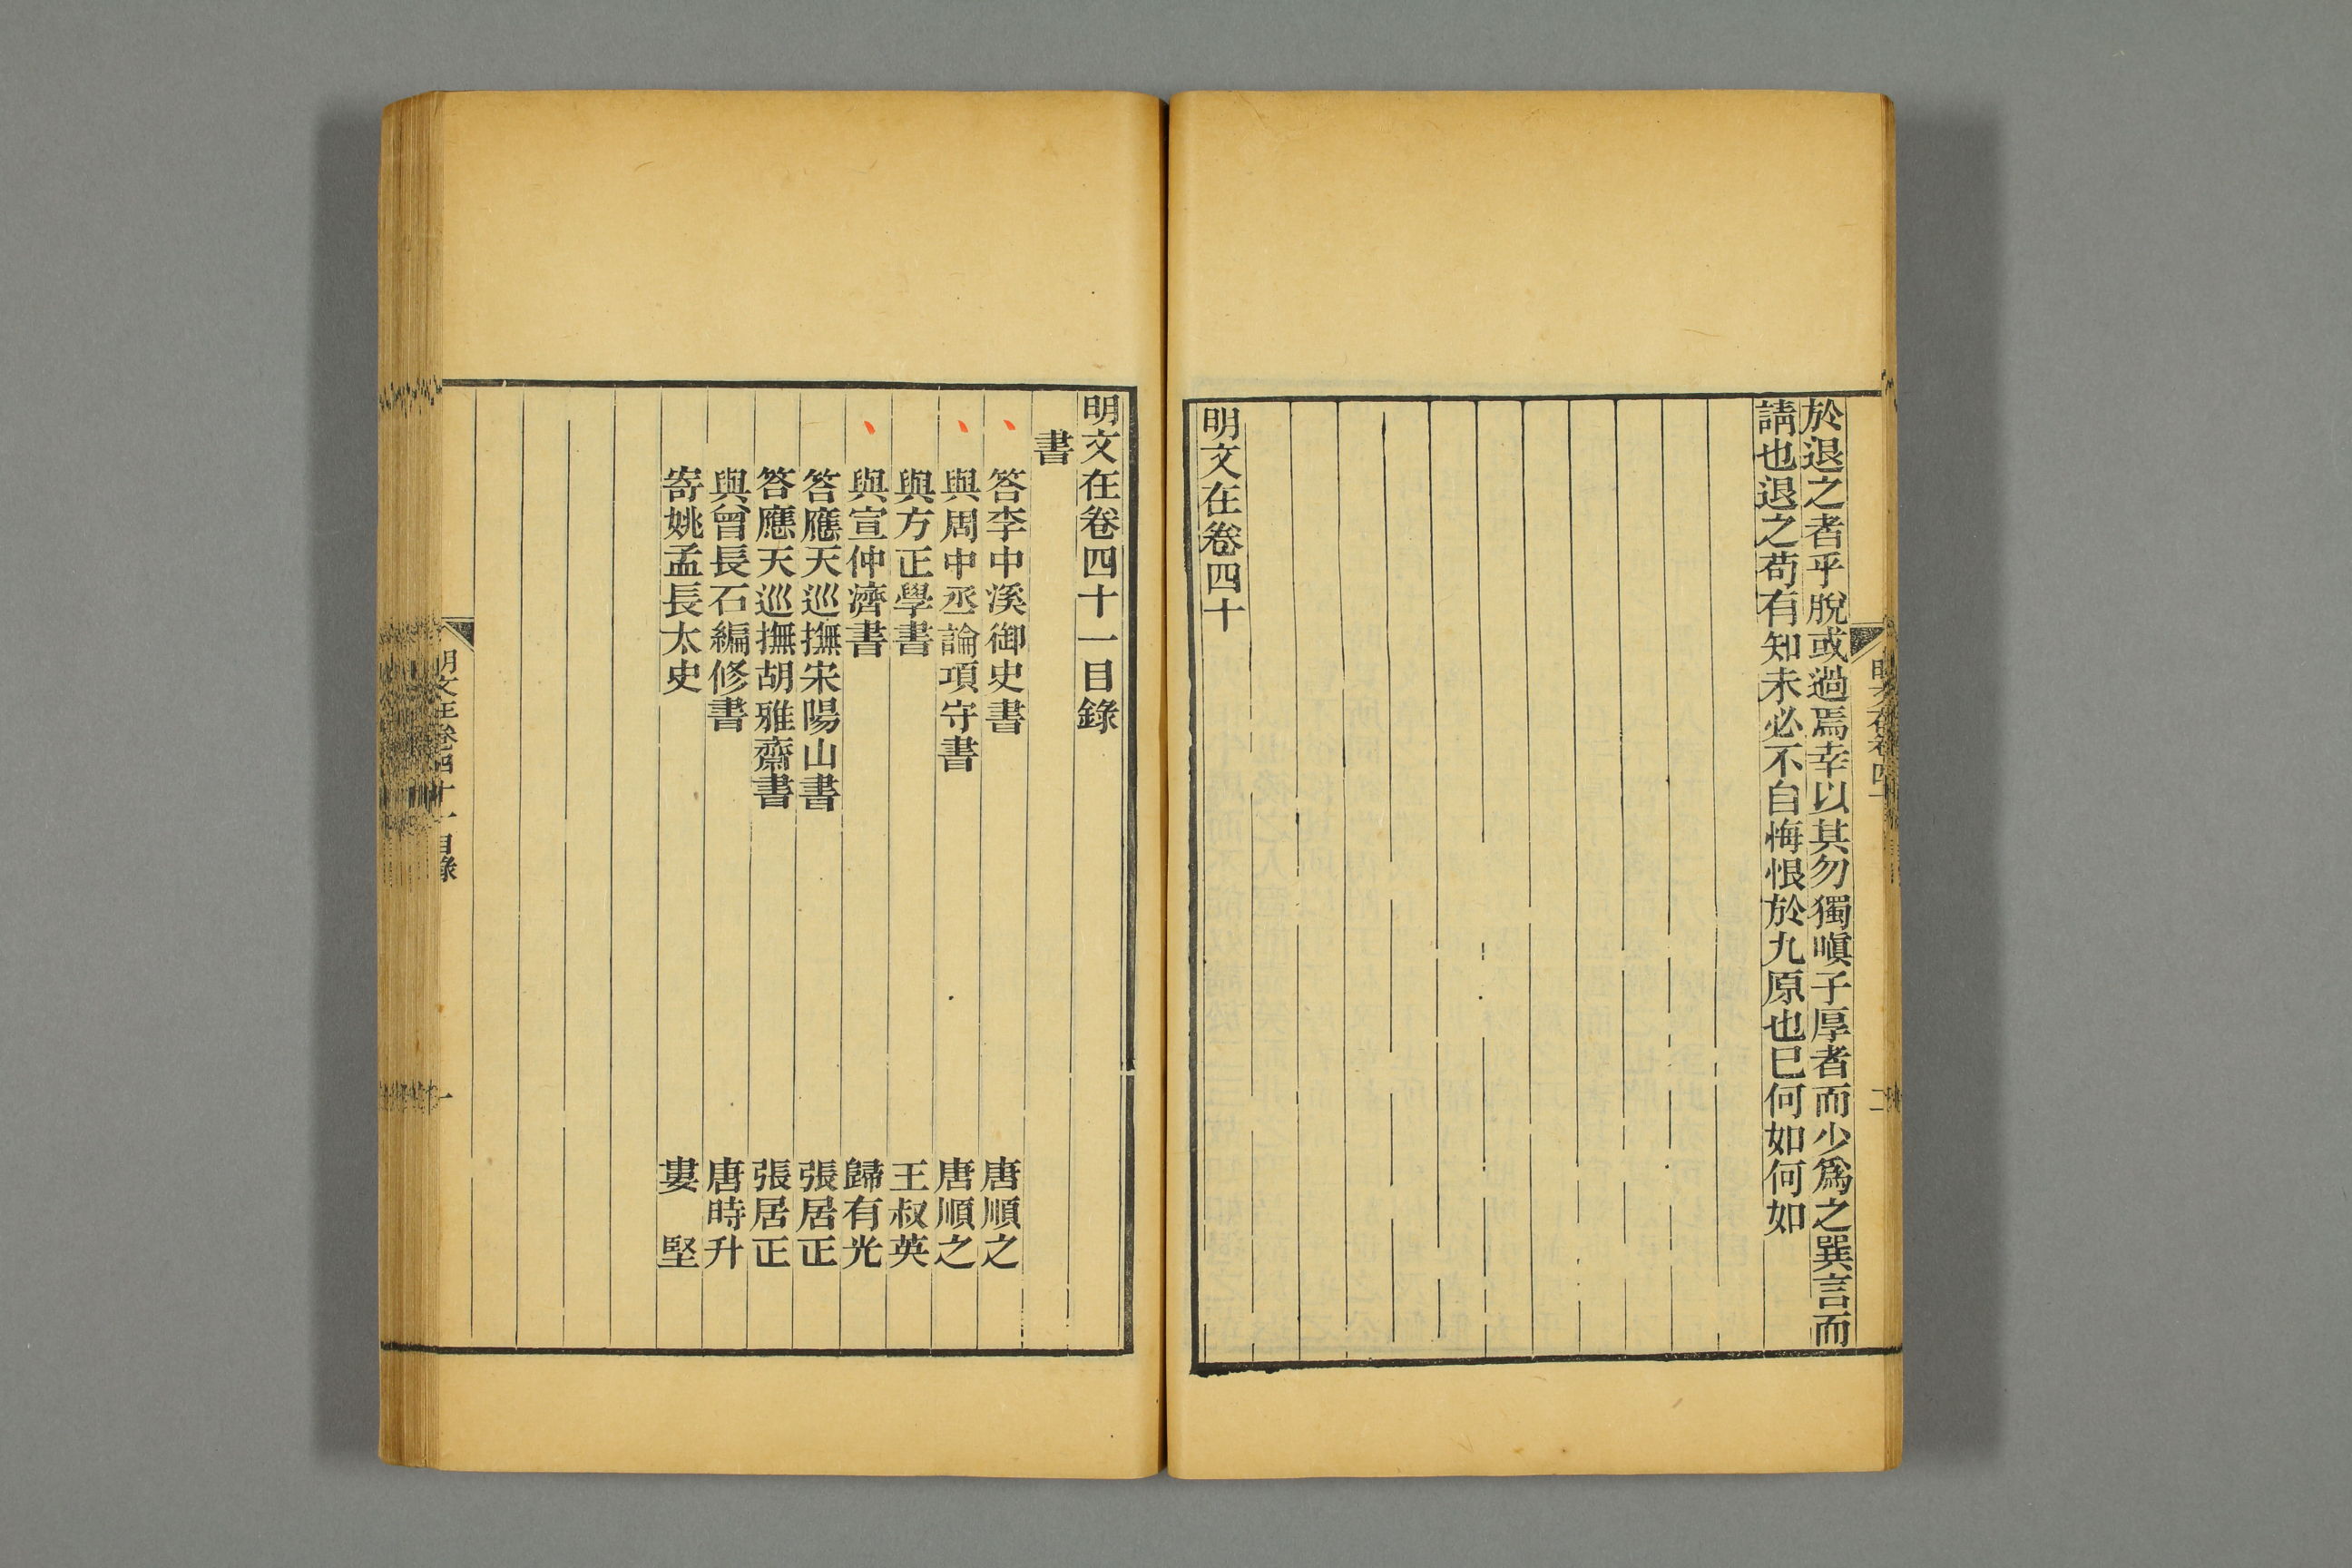 於退之者乎脫或過焉幸以其勿獨嗔子厚者而少爲之巽言而
請也退之苟有知未必不自悔恨於九原也巳何如何如
明文在卷四十
明文在卷四十一目錄
書
答李中溪御史書 唐順之
與周中丞論項守書 唐順之
與方正學書 王叔英
與宣仲濟書 歸有光
答應天巡撫宋陽山書 張居正
答應天巡撫胡雅齋書 張居正
與曾長石編修書 唐時升
寄姚孟長太史 婁堅
明文在卷四十一目錄
一